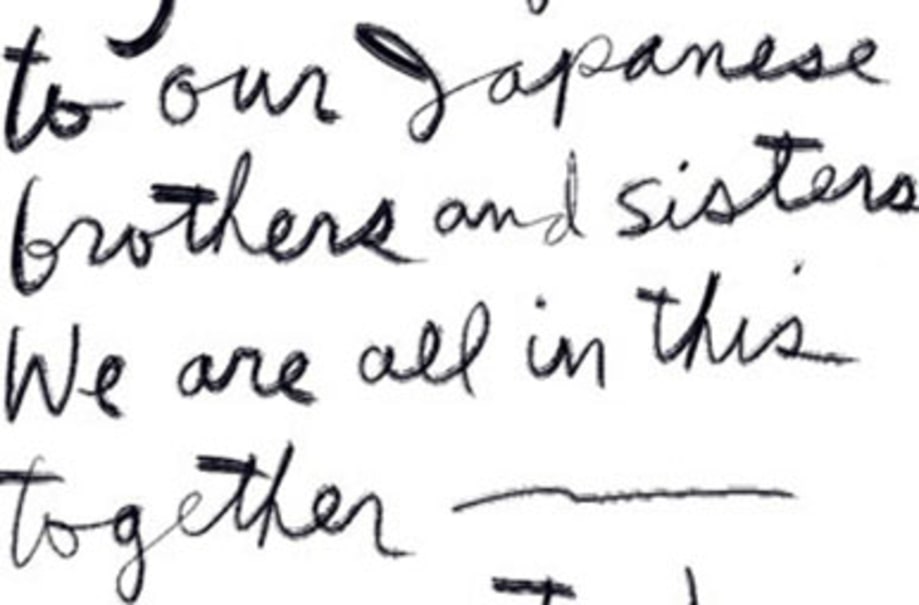 to our Japanese
brothers and sisters
We are all in this
together —